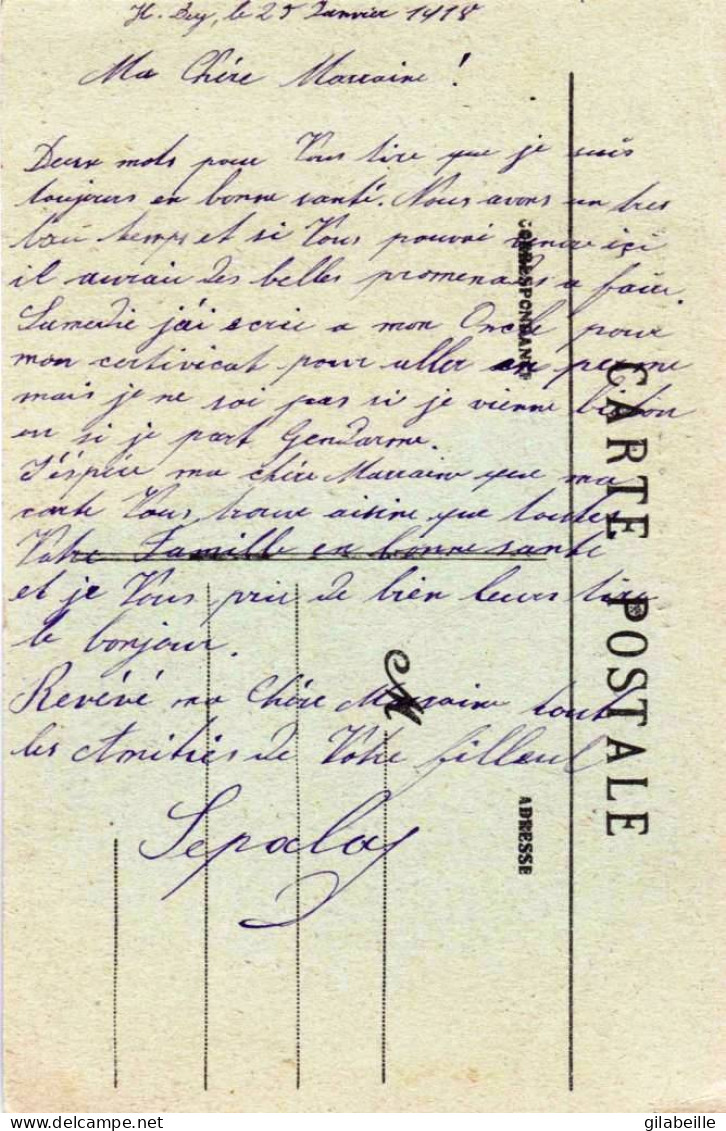 H. Dey, le 25 Janvier 1918
Ma Chére Marraine !
Deux mots pour Vous tire que je suis
toujours en bonne santé. Nous avons un tres
bau temps et si Vous pouvai venir içi
il aurai des belles promenades a faire.
Samedie j'ai ecrie a mon Oncle pour
mon certivicat pour aller en perme
mais je ne soi pas si je vienne
ou si je part Gendarme.
J'éspére ma chére Marraine que ma
carte Vous trouve aisine que toute
Votre Famille en bonne santé
et je Vous prie de bien leurs tire
le bonjour.
Revévé ma Chére Marraine tout
les Amitiés de Votre filleul
CORRESPONDANCE
ADRESSE
CARTE POSTALE
gilabeille